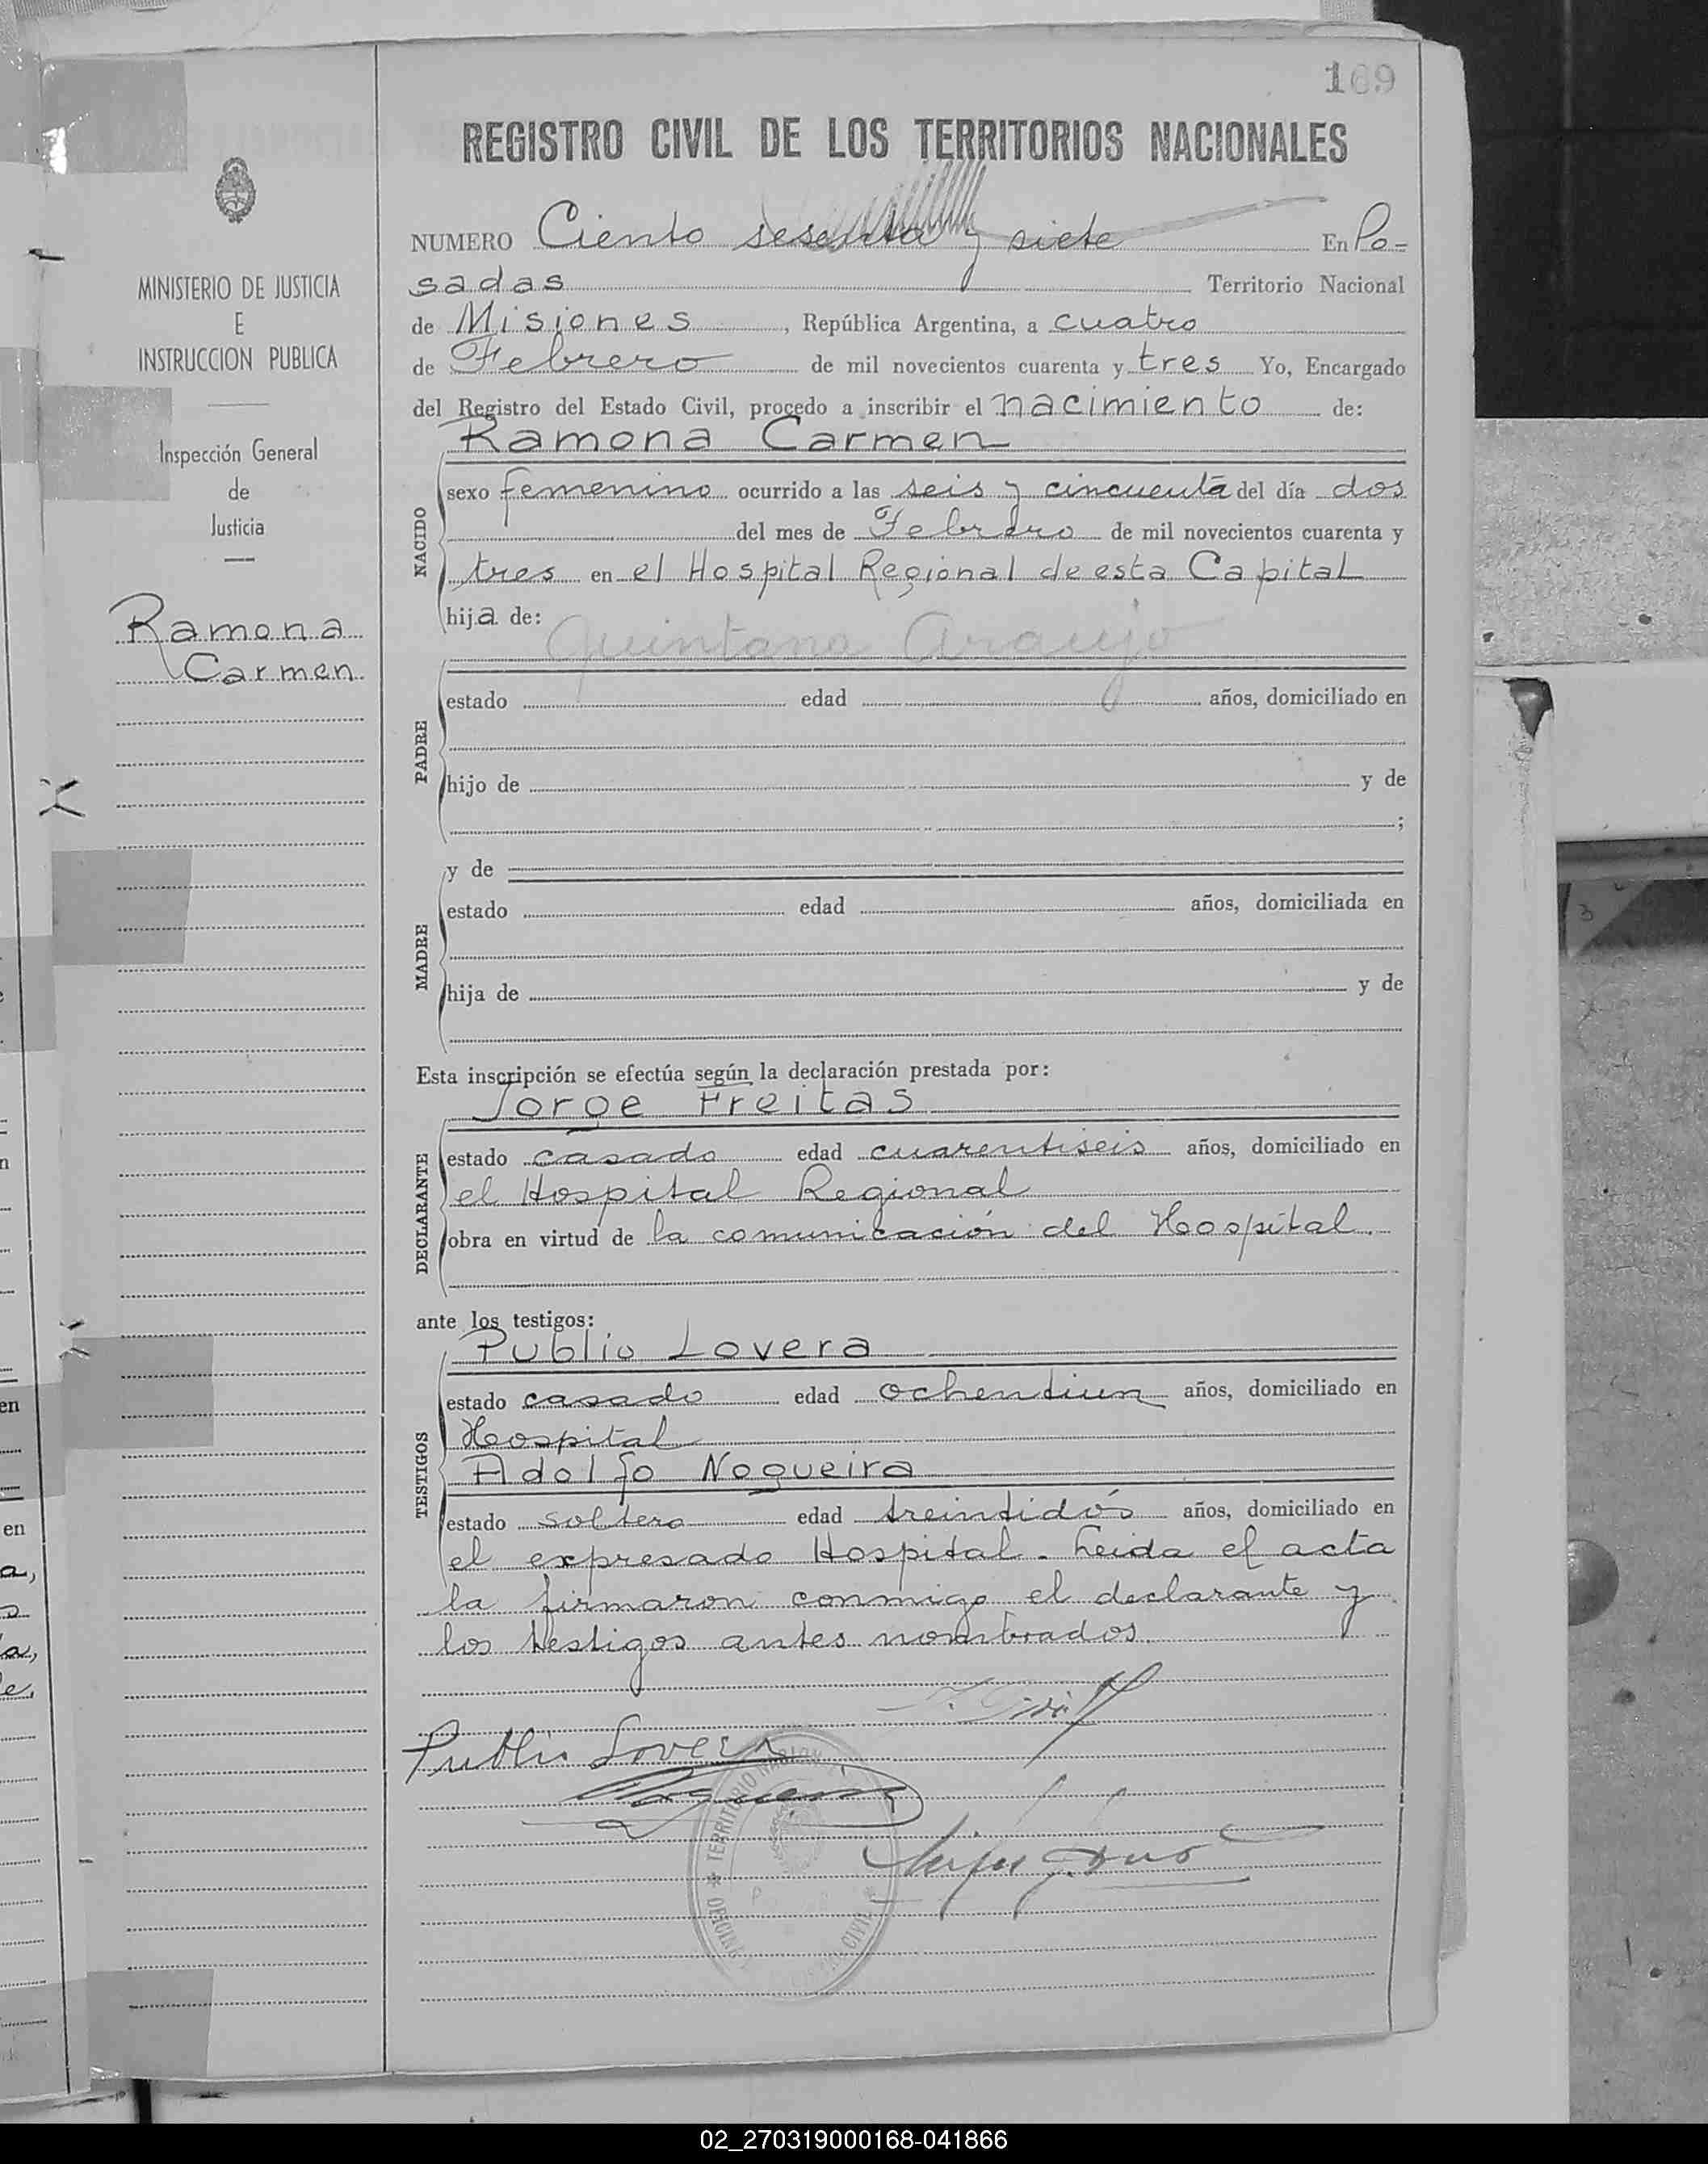 169
REGISTRO CIVIL DE LOS TERRITORIOS NACIONALES
NUMERO Ciento sesenta y siete En Po-
sadas Territorio Nacional
de Misiones, República Argentina, a cuatro
de Febrero de mil novecientos cuarenta y tres Yo, Encargado
del Registro del Estado Civil, procedo a inscribir el nacimiento de:
Ramona Carmen
NACIDO
sexo femenino ocurrido a las seis y cincuenta del día dos
del mes de Febrero de mil novecientos cuarenta y
tres en el Hospital Regional de esta Capital
hija de:
Quintana Araujo
PADRE
estado edad años, domiciliado en
hijo de y de
;
y de
MADRE
estado edad años, domiciliada en
hija de y de
Esta inscripción se efectúa según la declaración prestada por:
Jorge Freitas
DECLARANTE
estado casado edad cuarentiseis años, domiciliado en
el Hospital Regional
obra en virtud de la comunicación del Hospital.
ante los testigos:
Publio Lovera
TESTIGOS
estado casado edad ochentiun años, domiciliado en
Hospital
Adolfo Nogueira
estado soltero edad treintidós años, domiciliado en
el expresado Hospital. Leida el acta
la firmaron conmigo el declarante y
los testigos antes nombrados.
Publio Lovera
Nogueira
TERRITORIO NACIONAL
OFICINA
CIVIL
MINISTERIO DE JUSTICIA
E
INSTRUCCION PUBLICA
Inspección General
de
Justicia
Ramona
Carmen
02_270319000168-041866